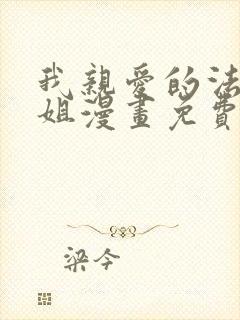 我親愛的法
姐漫畫免費
梁今